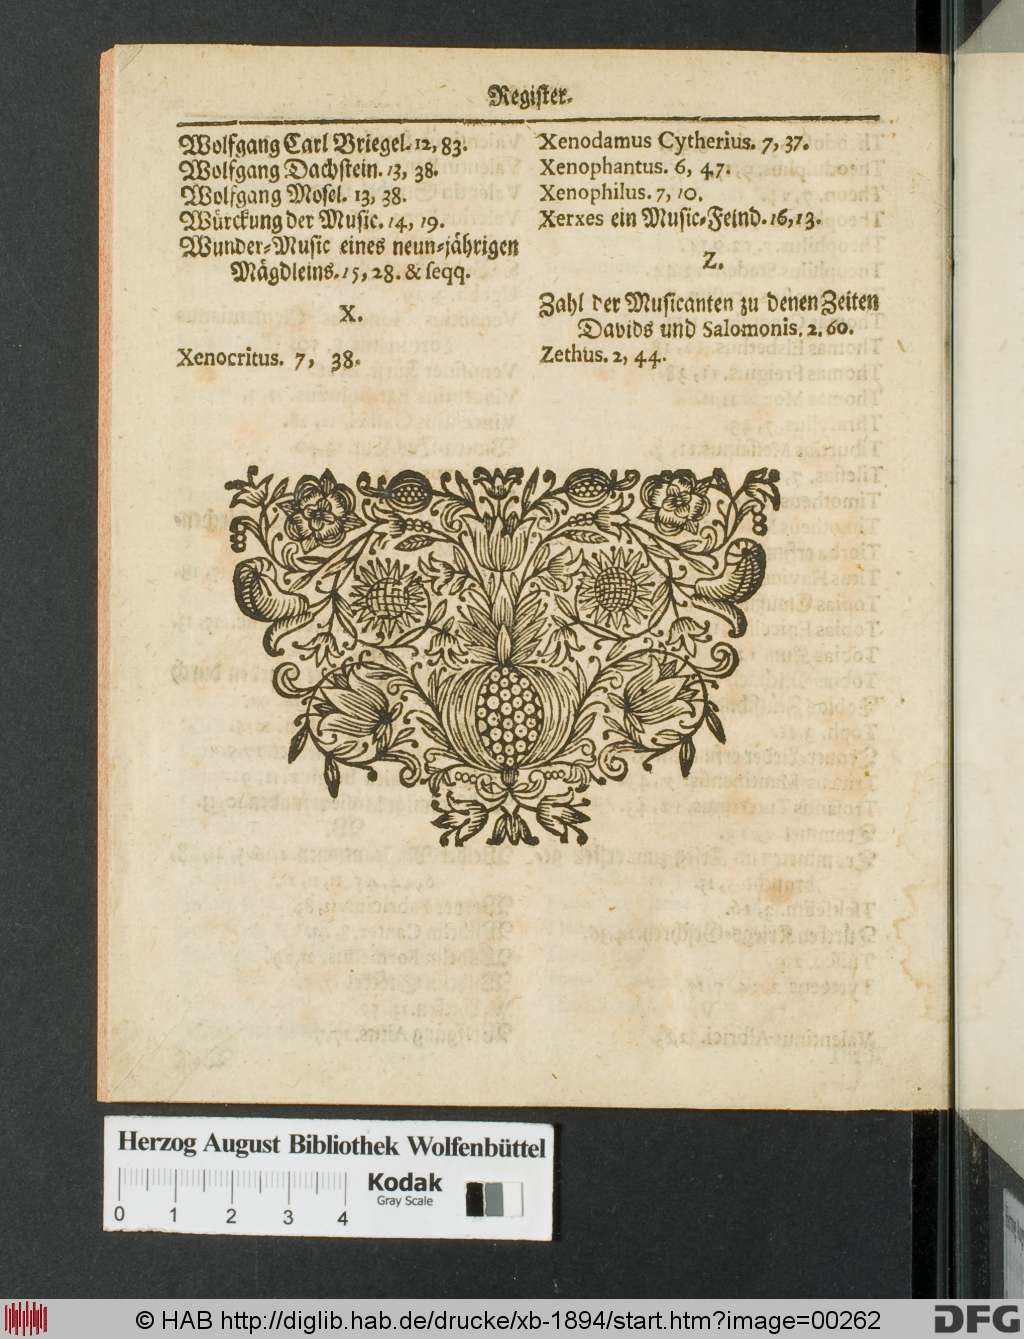 Register.
Wolfgang Carl Briegel. 12, 83.
Wolfgang Dachstein. 13, 38.
Wolfgang Mosel. 13, 38.
Würckung der Music. 14, 19.
Wunder-Music eines neun-jährigen
Mägdleins. 15, 28. & seqq.
X.
Xenocritus. 7, 38.
Xenodamus Cytherius. 7, 37.
Xenophantus. 6, 47.
Xenophilus. 7, 10.
Xerxes ein Music-Feind. 16, 13.
Z.
Zahl der Musicanten zu denen Zeiten
Davids und Salomonis. 2. 60.
Zethus. 2, 44.
Herzog August Bibliothek Wolfenbüttel
Kodak
Gray Scale
0 1 2 3 4
© HAB http://diglib.hab.de/drucke/xb-1894/start.htm?image=00262
DFG